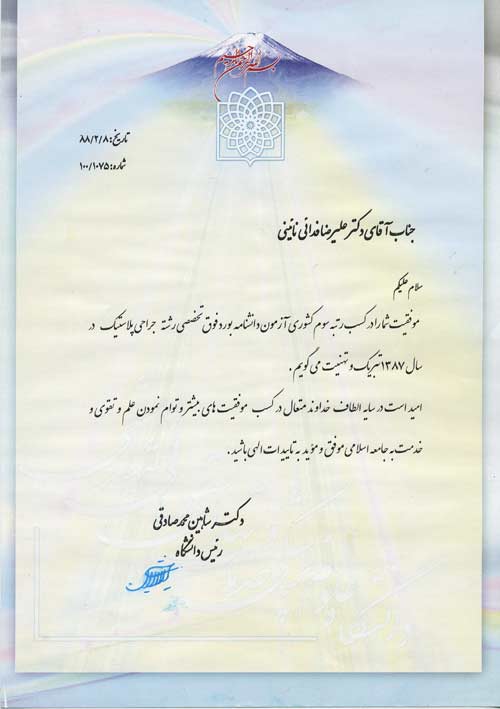 بسم الله الرحمن الرحیم
تاریخ: ۸۸/۲/۸
شماره: ۱۰۰/۱۰۷۵
جناب آقای دکتر علیرضا فدائی نائینی
سلام علیکم
موفقیت شما را در کسب رتبه سوم کشوری آزمون دانشنامه بورد فوق تخصصی رشته جراحی پلاستیک در
سال ۱۳۸۷ تبریک و تهنیت می گویم.
امید است در سایه الطاف خداوند متعال در کسب موفقیت های بیشتر و توام نمودن علم و تقوی و
خدمت به جامعه اسلامی موفق و مؤید به تاییدات الهی باشید.
دکتر شاهین محمد صادقی
رئیس دانشگاه